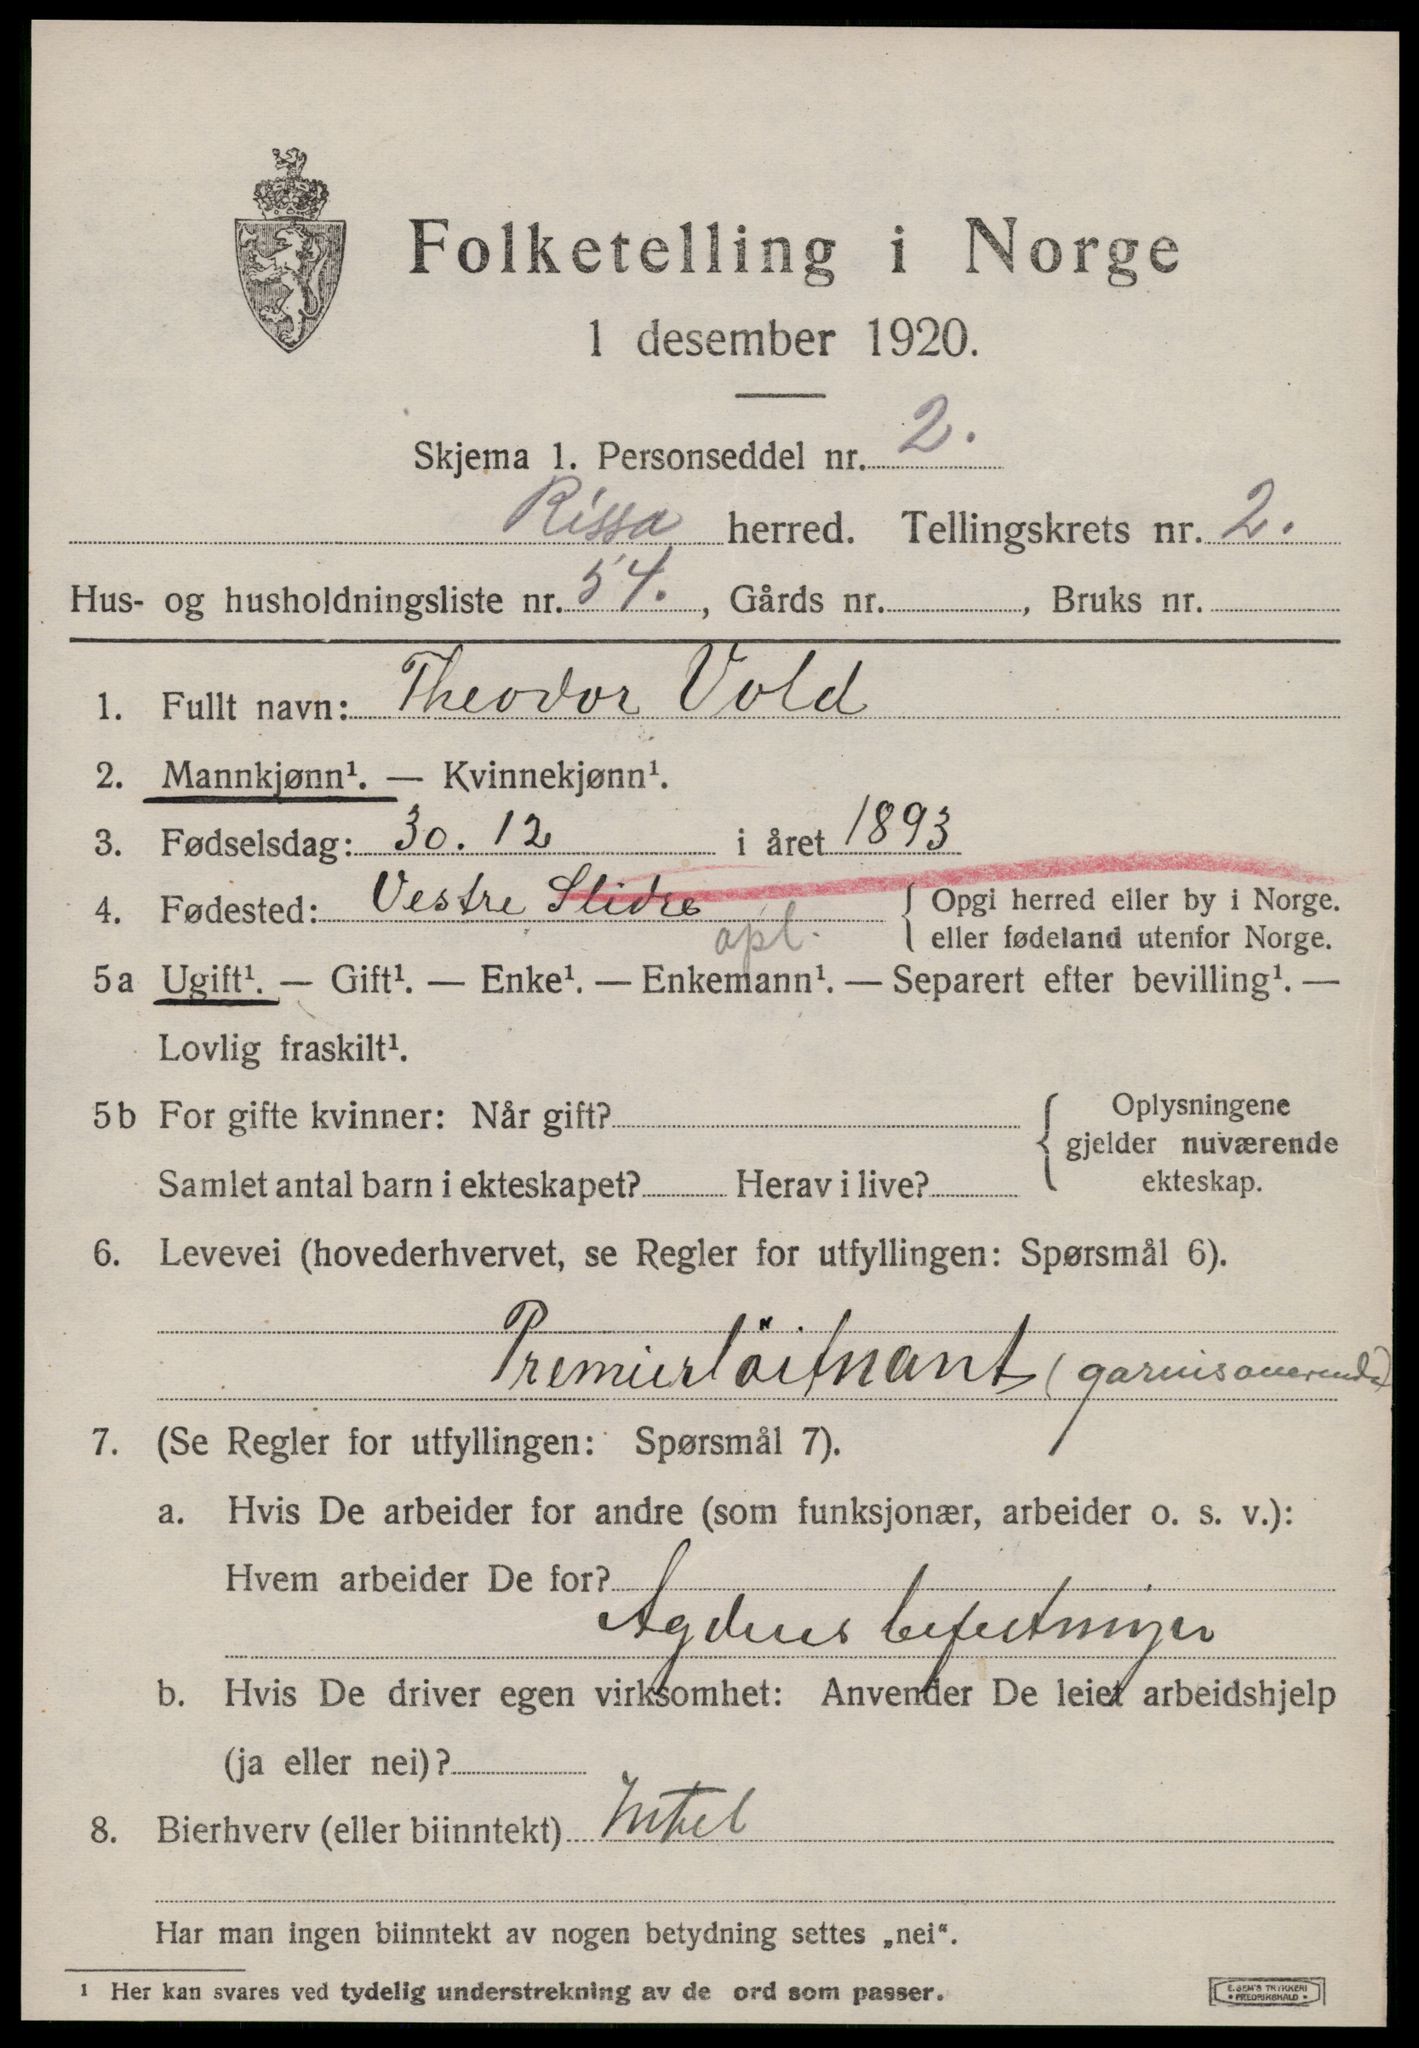 Folketelling i Norge
1 desember 1920.
Skjema 1. Personseddel nr. 2.
Rissa herred. Tellingskrets nr. 2.
Hus- og husholdningsliste nr. 54. , Gårds nr. , Bruks nr.
1. Fullt navn: Theodor Vold
2. Mannkjønn¹. — Kvinnekjønn¹.
3. Fødselsdag: 30. 12 i året 1893
4. Fødested: Vestre Slidre { Opgi herred eller by i Norge.
opl. eller fødeland utenfor Norge.
5a Ugift¹. — Gift¹. — Enke¹. — Enkemann¹. — Separert efter bevilling¹. —
Lovlig fraskilt¹.
5b For gifte kvinner: Når gift? { Oplysningene
gjelder nuværende
Samlet antal barn i ekteskapet? Herav i live? ekteskap.
6. Levevei (hovederhvervet, se Regler for utfyllingen: Spørsmål 6).
Premierlöitnant (garnisonerende)
7. (Se Regler for utfyllingen: Spørsmål 7).
a. Hvis De arbeider for andre (som funksjonær, arbeider o. s. v.):
Hvem arbeider De for?
Agdenes befestninger
b. Hvis De driver egen virksomhet: Anvender De leiet arbeidshjelp
(ja eller nei)?
8. Bierhverv (eller biinntekt) Intet
Har man ingen biinntekt av nogen betydning settes „nei“.
¹ Her kan svares ved tydelig understrekning av de ord som passer.
E. SEM'S TRYKKERI
• FREDRIKSHALD •